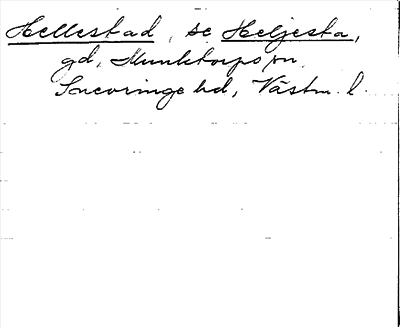 Hellestad, se Heljesta,
gd, Munktorps sn.
Snevringe hd, Västm. l.